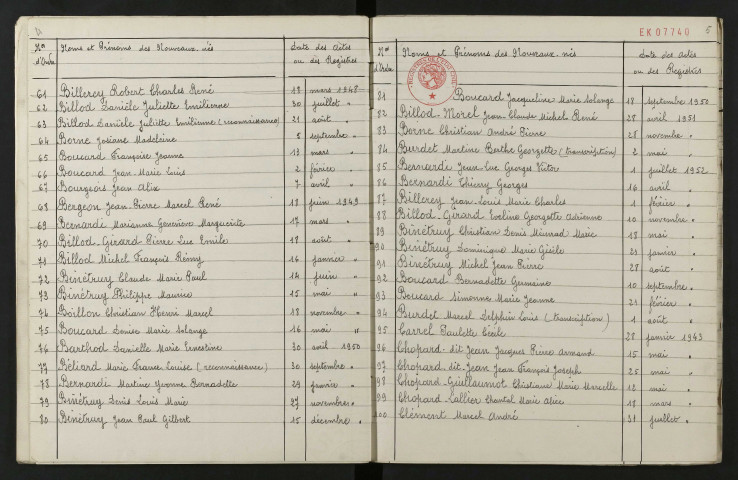 Nos d'Ordre Noms et Prénoms des Nouveaux-nés Date des Actes ou des Registres
61 Billerey Robert Charles René 18 mars 1948
62 Billod Danièle Juliette Emilienne 30 juillet "
63 Billod Danièle Juliette Emilienne (reconnaissance) 21 août "
64 Borne Josiane Madeleine 5 septembre "
65 Boucard Françoise Jeanne 13 mars "
66 Boucard Jean-Marie Louis 2 février "
67 Bourgeois Jean Alix 7 avril "
68 Bergeon Jean-Pierre Marcel René 18 juin 1949
69 Bernardi Marianne Geneviève Marguerite 17 mars "
70 Billod-Girard Pierre Luc Emile 18 août "
71 Billod Michel François Rémy 16 janvier "
72 Binétruy Claude Marie Paul 14 juin "
73 Binétruy Philippe Maurice 15 mai "
74 Boillon Christian Henri Marcel 18 novembre "
75 Boucard Denise Marie Solange 16 mai "
76 Barthod Danielle Marie Ernestine 30 avril 1950
77 Béliard Marie France Louise (reconnaissance) 30 septembre "
78 Bernardi Martine Yvonne Bernadette 29 janvier "
79 Binétruy Denis Louis Marie 27 novembre "
80 Binétruy Jean Paul Gilbert 15 décembre "
EK07740 5
Nos d'Ordre Noms et Prénoms des Nouveaux-nés Date des Actes ou des Registres
81 Boucard Jacqueline Marie Solange 18 septembre 1950
82 Billod-Morel Jean Claude Michel René 28 avril 1951
83 Borne Christian André Pierre 28 novembre "
84 Burdet Martine Berthe Georgette (transcription) 2 mai "
85 Jean-Luc Georges Victor 1 juillet 1952
86 Bernardi Thierry Georges 16 avril "
87 Billerey Jean-Louis Marie Charles 1 février "
88 Billod-Girard Evelyne Georgette Adrienne 10 novembre "
89 Binétruy Christian Denis Marie 18 mai "
90 Binétruy Dominique Marie Gisèle 21 janvier "
91 Binétruy Michel Jean Pierre 28 août "
92 Boucard Bernadette Germaine 10 septembre "
93 Boucard Simonne Marie Jeanne 21 février "
94 Burdet Marcel Delphin Louis (transcription) 1 août "
95 Carrel Paulette Cécile 28 janvier 1943
96 Chopard-dit-Jean Jacques Pierre Armand 15 mai "
97 Chopard-dit-Jean Jean François Joseph 25 mai "
98 Chopard-Guillaumot Christiane Marie Marcelle 12 mai "
99 Chopard-Lallier Chantal Marie Alice 18 mars "
100 Clément Marcel André 31 juillet "